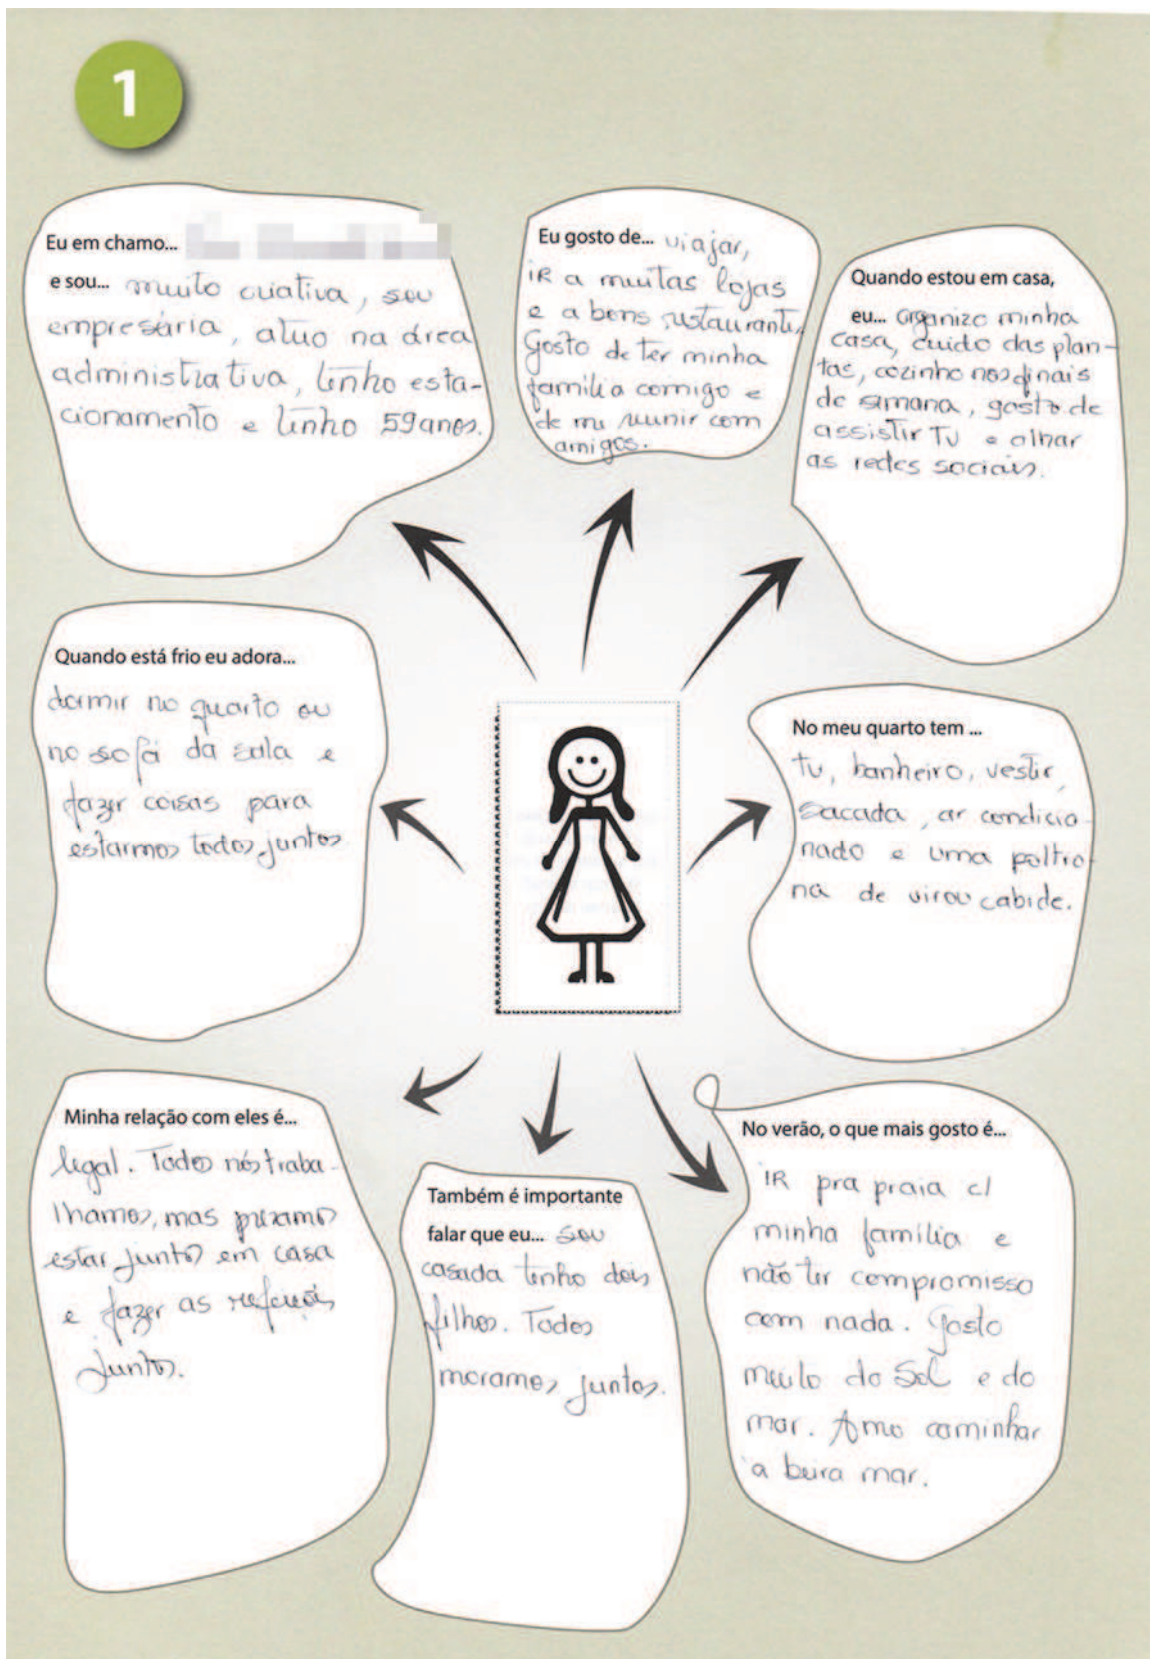 1
Eu em chamo...
e sou... muito criativa, sou
empresária, atuo na área
administrativa, tenho esta-
cionamento e tenho 59 anos.
Eu gosto de... viajar,
IR a muitas lojas
e a bons restaurantes.
Gosto de ter minha
família comigo e
de me reunir com
amigos.
Quando estou em casa,
eu... organizo minha
casa, cuido das plan-
tas, cozinho nos finais
de semana, gosto de
assistir TV e olhar
as redes sociais.
Quando está frio eu adora...
dormir no quarto ou
no sofá da sala e
fazer coisas para
estarmos todos juntos
No meu quarto tem ...
tv, banheiro, vestir,
sacada, ar condicio-
nado e uma poltro-
na de virou cabide.
Minha relação com eles é...
legal. Todos nós traba-
lhamos, mas prezamos
estar juntos em casa
e fazer as refeições
juntos.
Também é importante
falar que eu... sou
casada tenho dois
filhos. Todos
moramos juntos.
No verão, o que mais gosto é...
IR pra praia c/
minha família e
não ter compromisso
com nada. Gosto
muito do Sol e do
mar. Amo caminhar
a beira mar.